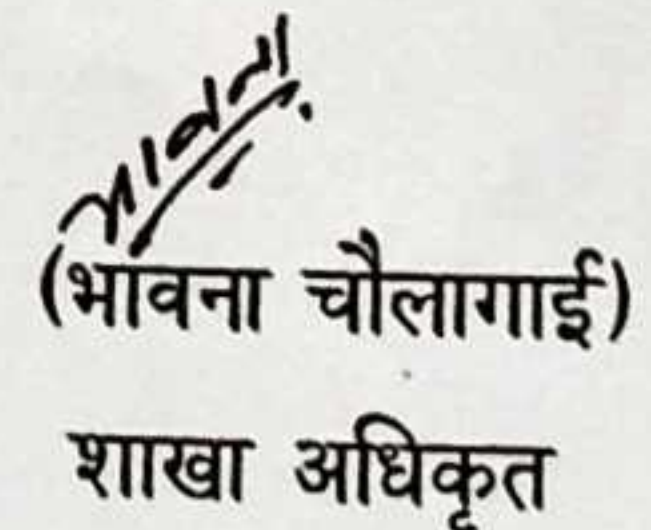 भावना
(भावना चौलागाई)
शाखा अधिकृत